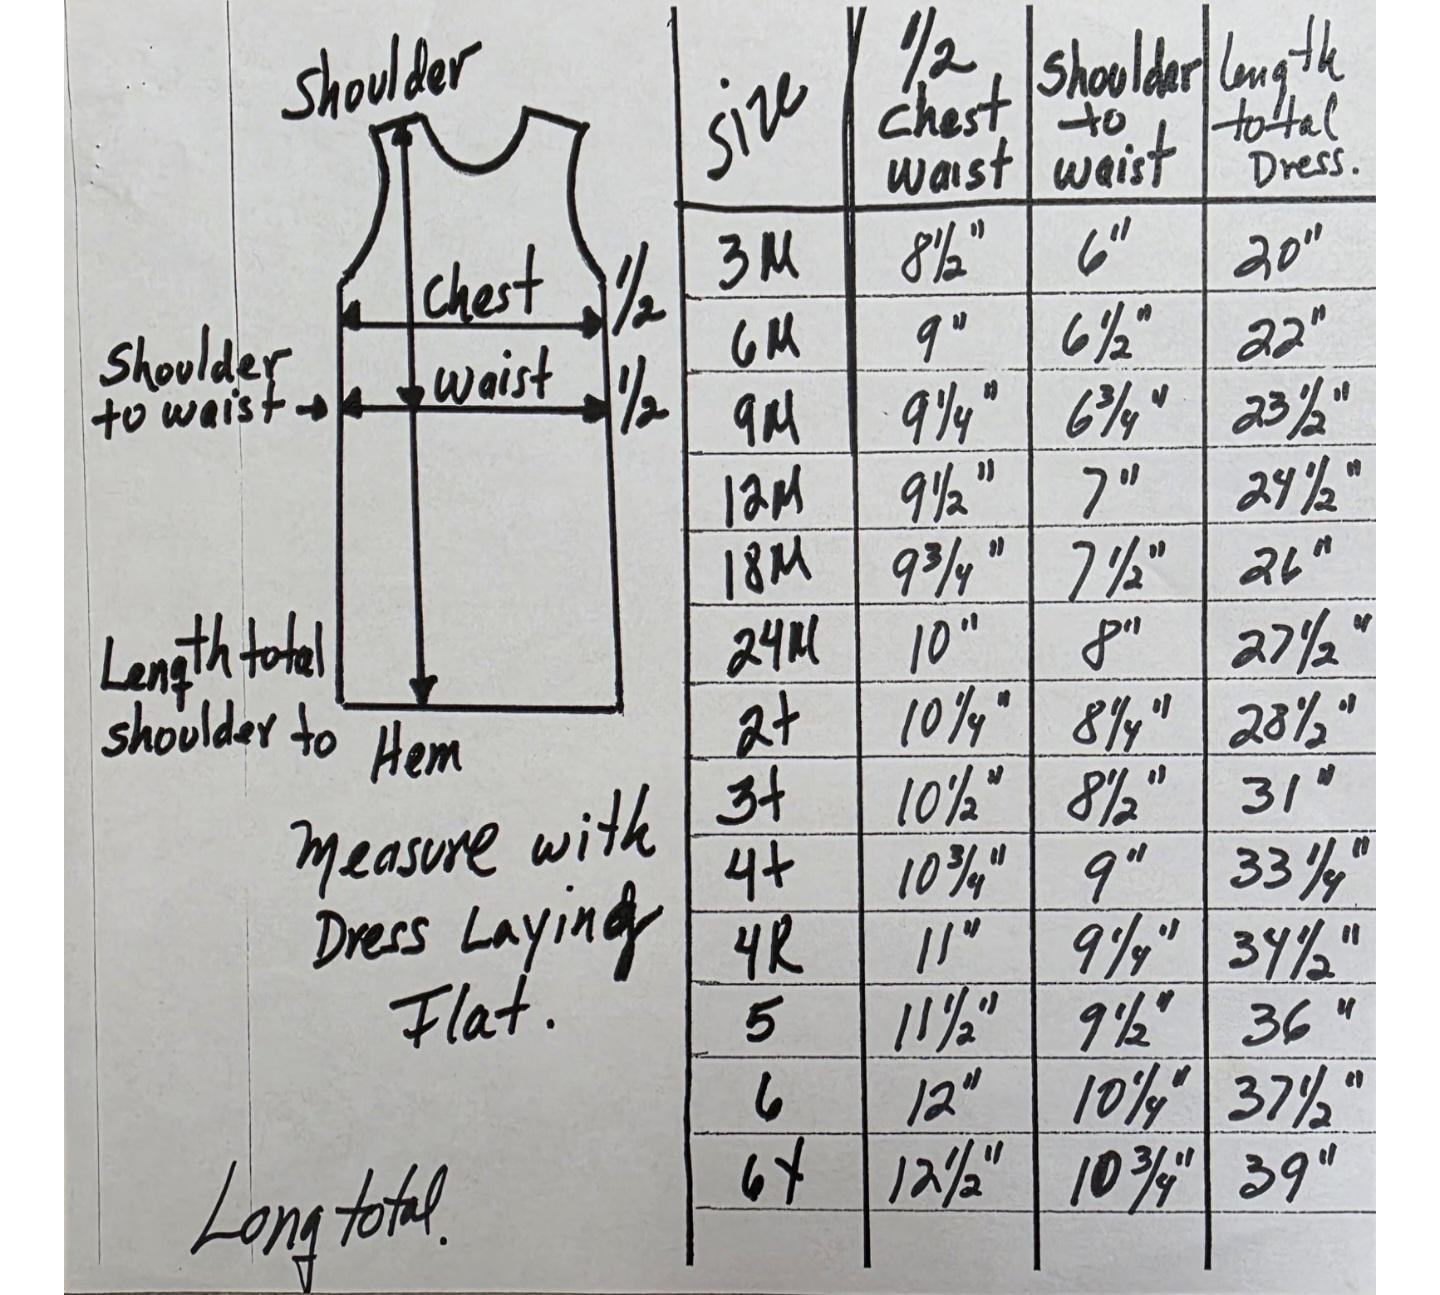 Shoulder
Chest 1/2
Shoulder
to waist
Waist 1/2
Length total
shoulder to Hem
Measure with
Dress Laying
Flat.
Long total.
Size 1/2 Chest Waist Shoulder to Waist Length total Dress.
3M 8 1/2" 6" 20"
6M 9" 6 1/2" 22"
9M 9 1/4" 6 3/4" 23 1/2"
12M 9 1/2" 7" 24 1/2"
18M 9 3/4" 7 1/2" 26"
24M 10" 8" 27 1/2"
2t 10 1/4" 8 1/4" 28 1/2"
3t 10 1/2" 8 1/2" 31"
4t 10 3/4" 9" 33 1/4"
4R 11" 9 1/4" 34 1/2"
5 11 1/2" 9 1/2" 36"
6 12" 10 1/4" 37 1/2"
6X 12 1/2" 10 3/4" 39"